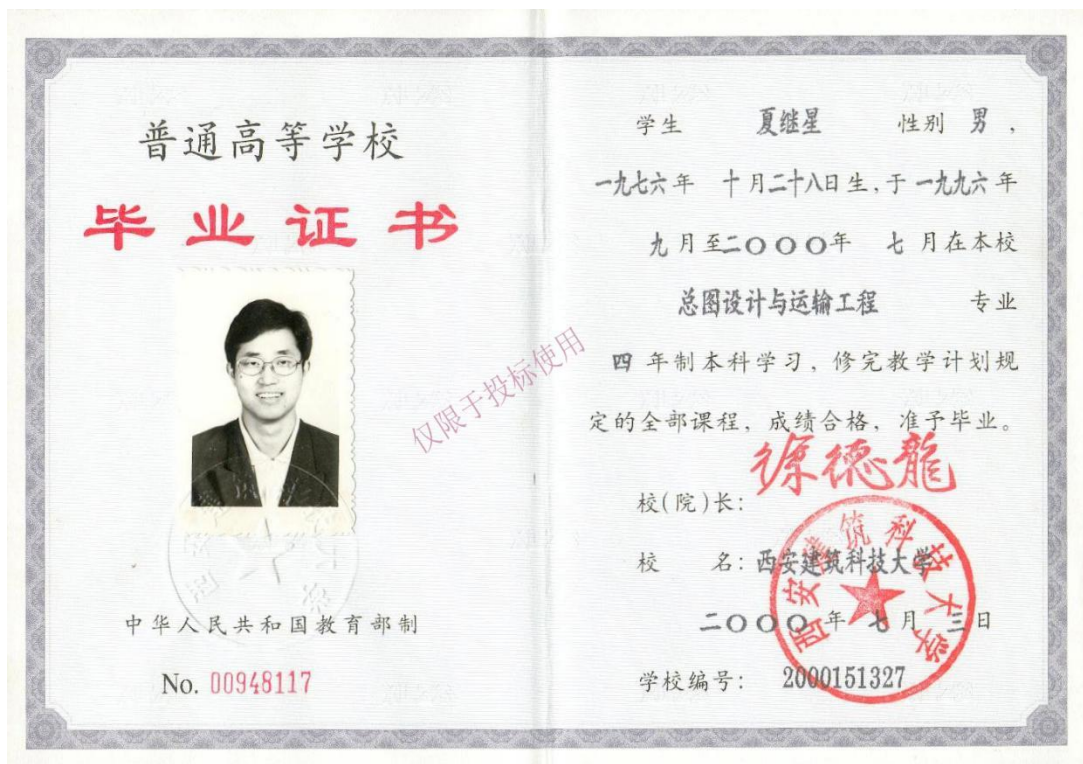 普通高等学校
毕业证书
中华人民共和国教育部制
No. 00948117
仅限于投标使用
学生 夏继星 性别 男,
一九七六年 十月二十八日生,于一九九六年
九月至二〇〇〇年 七月在本校
总图设计与运输工程 专业
四年制本科学习,修完教学计划规
定的全部课程,成绩合格,准予毕业。
校(院)长: 徐德龍
校 名: 西安建筑科技大学
二〇〇〇年 七月 三日
学校编号: 2000151327
西安建筑科技大学